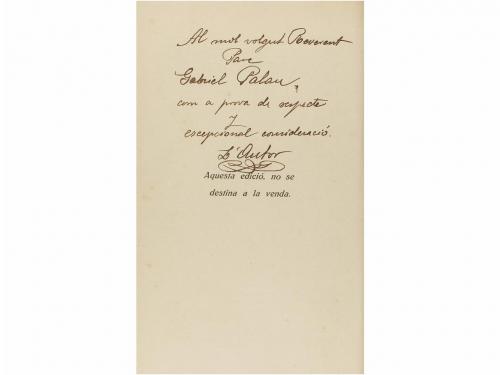 Al molt volgut Reverent
Pare
Gabriel Palau,
com a prova de respecte
y
escepcional consideració.
L'Autor
Aquesta edició, no se
destina a la venda.